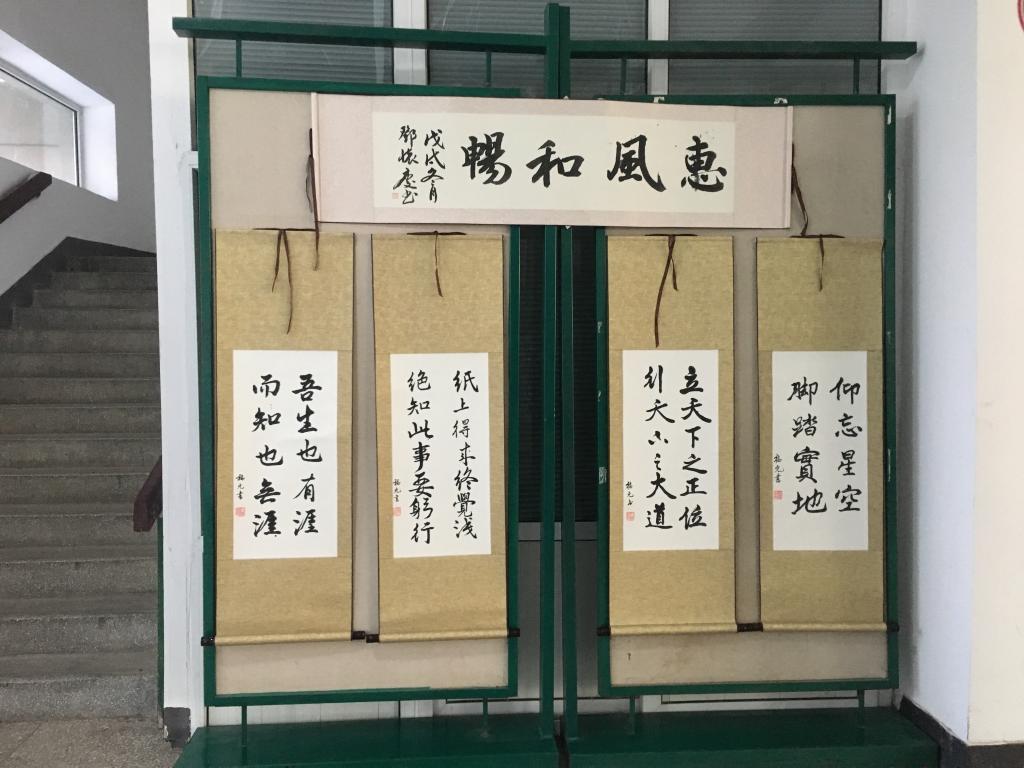 惠風和暢
戊戌冬月
鄧懷慶书
仰忘星空
脚踏實地
楊光書
立天下之正位
行天下之大道
纸上得来终覺浅
绝知此事要躬行
吾生也有涯
而知也無涯